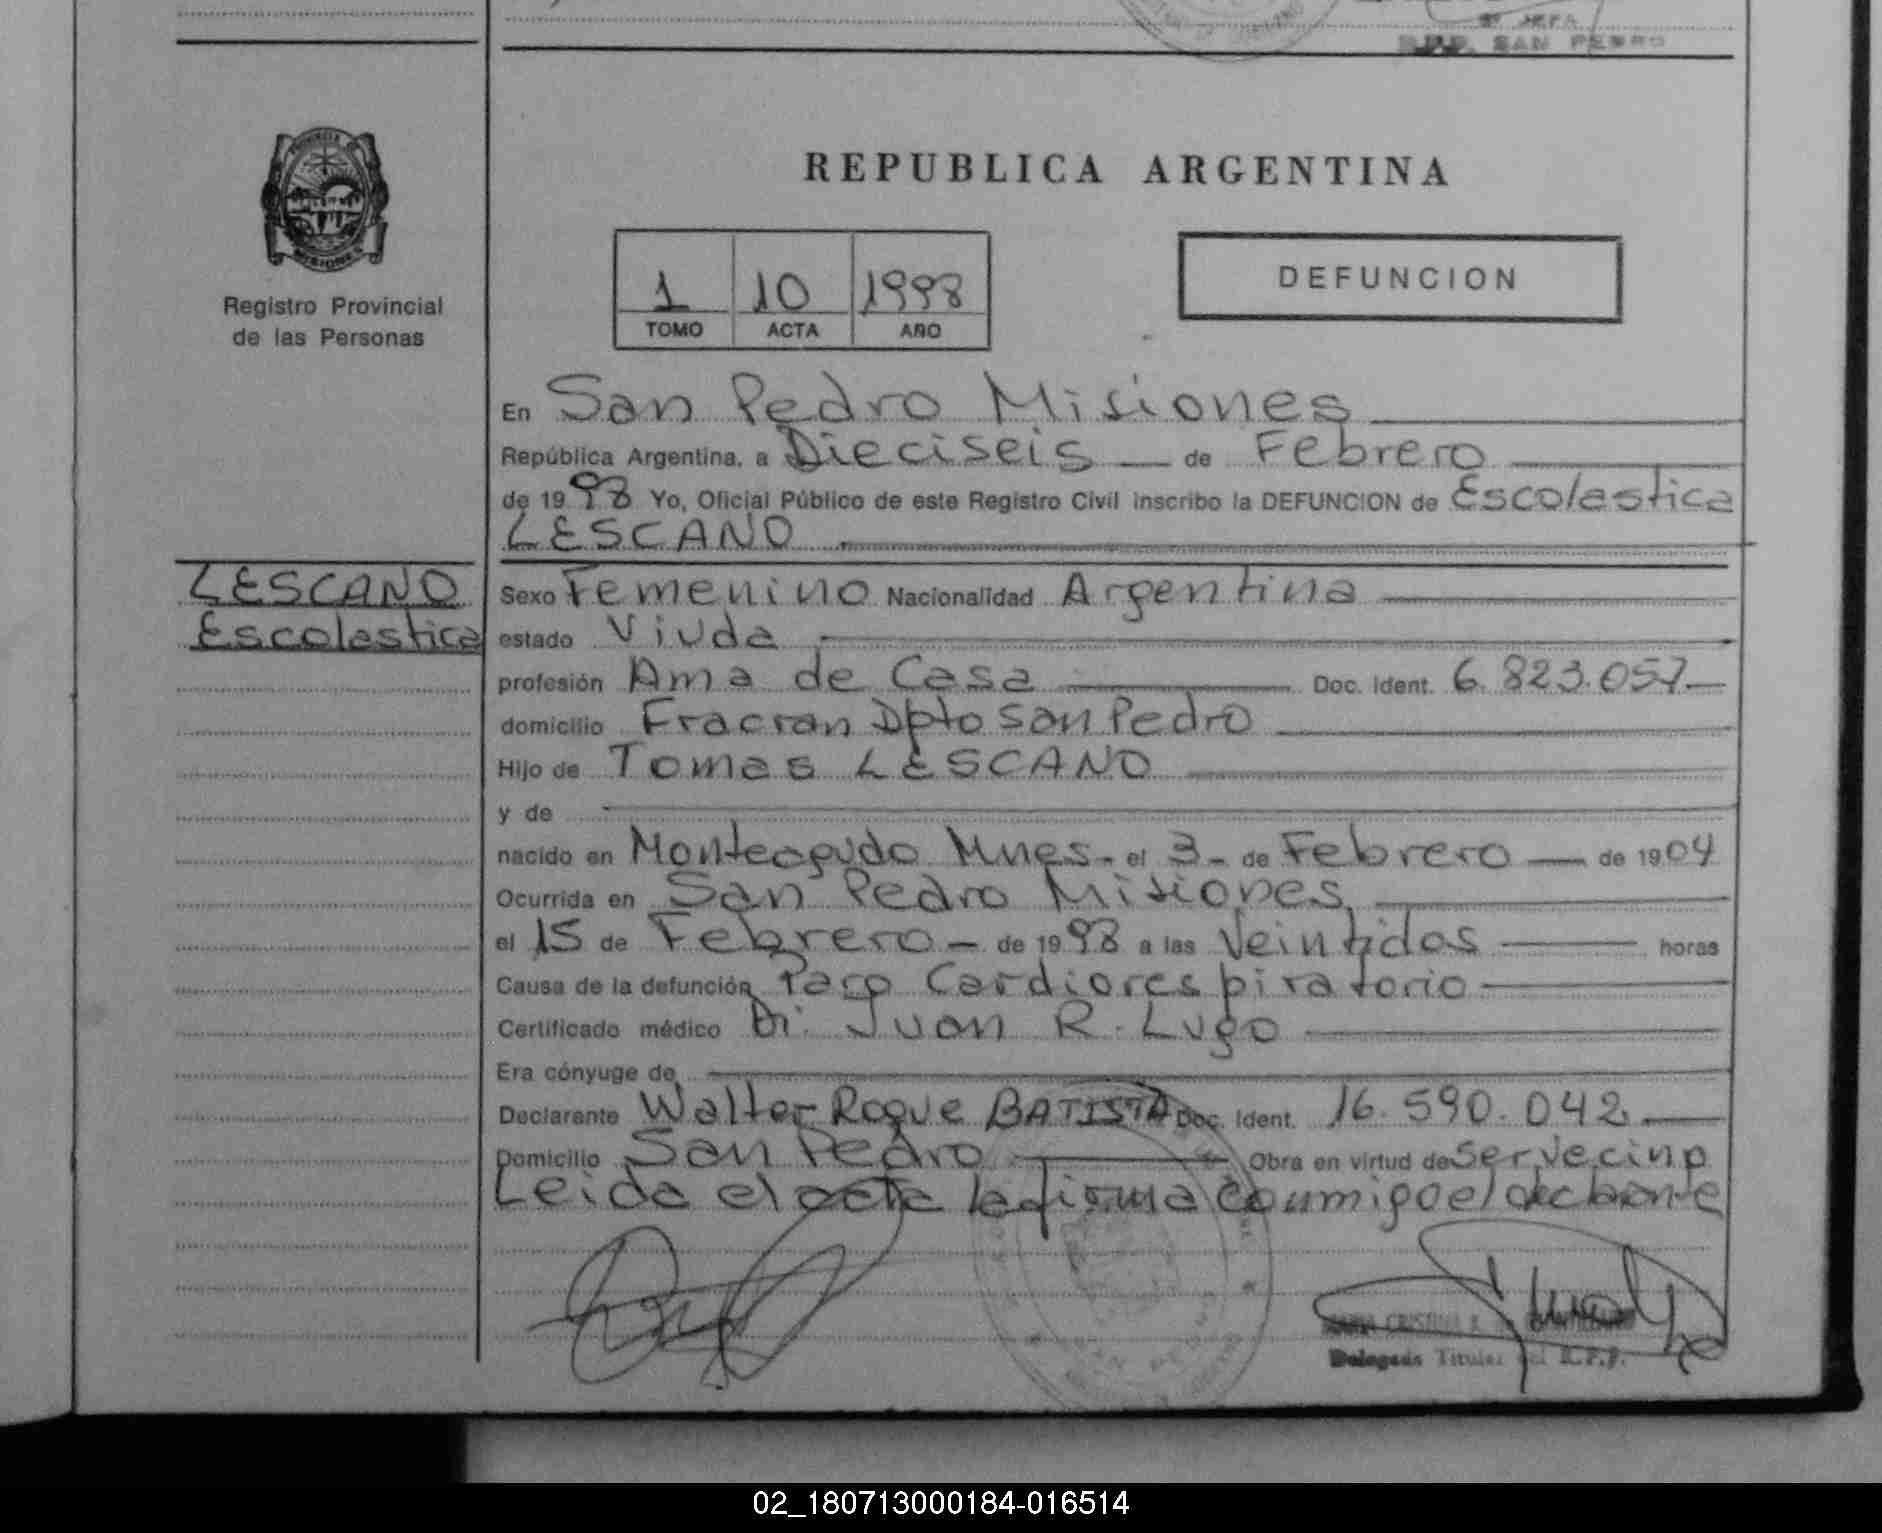 2º JEFA
R.P.P. SAN PEDRO
PROVINCIA DE
MISIONES
Registro Provincial
de las Personas
REPUBLICA ARGENTINA
1 10 1998
TOMO ACTA AÑO
DEFUNCION
En San Pedro Misiones
República Argentina, a Dieciseis de Febrero
de 1998 Yo, Oficial Público de este Registro Civil inscribo la DEFUNCION de Escolastica
LESCANO
LESCANO
Escolastica
Sexo Femenino Nacionalidad Argentina
estado Viuda
profesión Ama de Casa Doc. Ident. 6.823.057
domicilio Fracran Dpto San Pedro
Hijo de Tomas LESCANO
y de
nacido en Monteagudo Mnes. el 3 de Febrero de 1904
Ocurrida en San Pedro Misiones
el 15 de Febrero de 1998 a las Veintidos horas
Causa de la defunción Paro Cardiorespiratorio
Certificado médico Dr. Juan R. Lugo
Era cónyuge de
Declarante Walter Roque BATISTA Doc. Ident. 16.590.042
Domicilio San Pedro Obra en virtud de Ser vecino
Leida el acta la firma conmigo el declarante
CRISTINA
Delegada Titular del R.P.P.
02_180713000184-016514